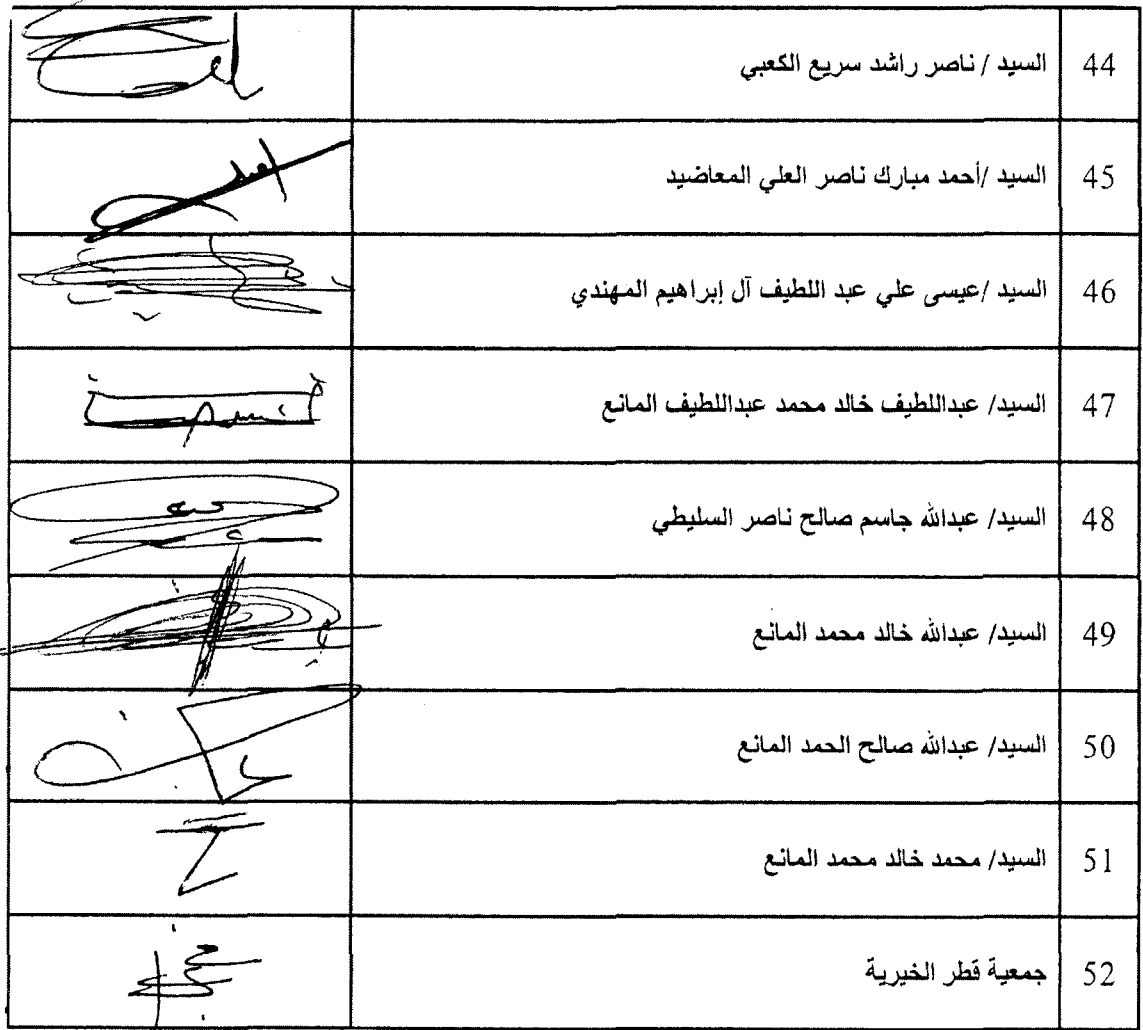 44 السيد / ناصر راشد سريع الكعبي
45 السيد /أحمد مبارك ناصر العلي المعاضيد
46 السيد /عيسى علي عبد اللطيف آل إبراهيم المهندي
47 السيد/ عبداللطيف خالد محمد عبداللطيف المانع
48 السيد/ عبدالله جاسم صالح ناصر السليطي
49 السيد/ عبدالله خالد محمد المانع
50 السيد/ عبدالله صالح الحمد المانع
51 السيد/ محمد خالد محمد المانع
52 جمعية قطر الخيرية